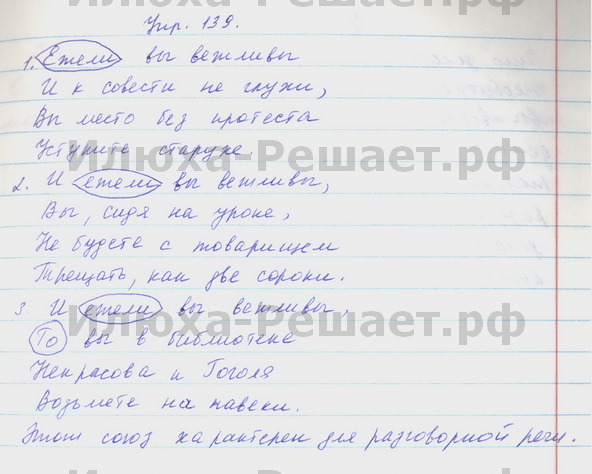 Упр. 139.
1. Ежели вы вежливы
И к совести не глухи,
Вы место без протеста
Уступите старухе.
Илюха-Решает.рф
2. И ежели вы вежливы,
Вы, сидя на уроке,
Не будете с товарищем
Трещать, как две сороки.
3 И ежели вы вежливы,
Илюха-Решает.рф
То вы в библиотеке
Некрасова и Гоголя
Возьмете не навеки.
Этот союз характерен для разговорной речи.